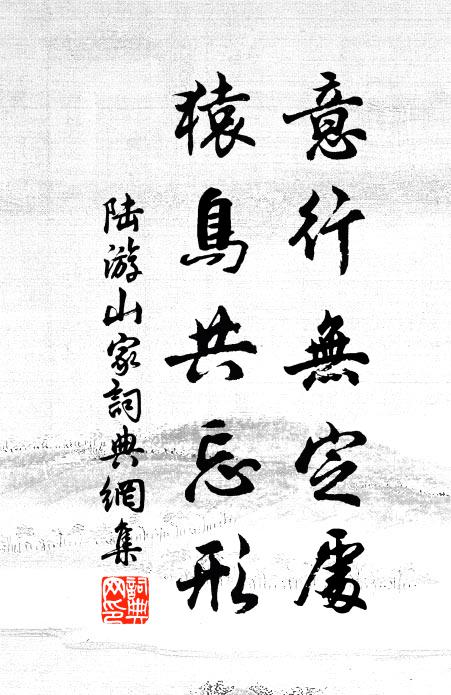 意行無定處
猿鳥共忘形
陆游山家詞典網集
詞典
网印